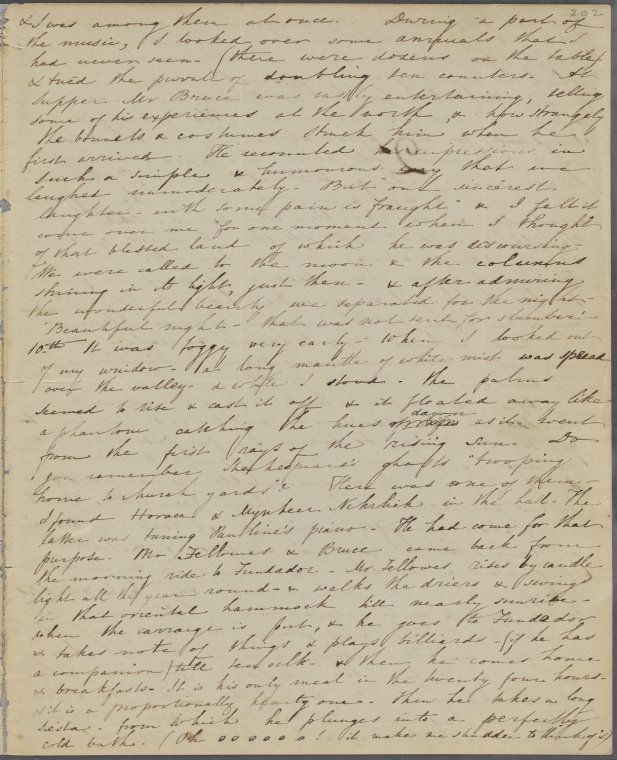 202
& I was among them at once. During a part of
the music, I looked over some annuals that I
had never seen - (there were dozens on the table)
& tried the puzzle of doubling ten counters. At
supper Mr Bruce was vastly entertaining, telling
some of his experiences at the north, & how strangely
the bonnets & costumes struck him when he
first arrived. He recounted his impressions in
such a simple & humourous way that we
laughed immoderately. But "our sincerest
laughter - with some pain is fraught" & I felt it
come over me for one moment when I thought
of that blessed land of which he was discoursing -
We were called to the moon & the columns
shining in its light, just then - & after admiring
the wonderful beauty we separated for the night -
"Beautiful night - that was not sent for slumber!
10th It was foggy very early - When I looked out
of my window - a long mantle of white mist was spread
over the valley - & while I stood - the palms
seemed to rise & cast it off & it floated away like
a phantom, catching the hues of dawn as it went
from the first rays of the rising sun - Do
you remember Shakespeare's ghosts "trooping
home to church yards"? Here was one of them -
I found Horace & Mynheer Nehrlich in the hall - The
latter was tuning Pauline's piano - He had come for that
purpose. Mr Fellowes & Bruce came back from
the morning ride to Fundador - Mr Fellowes rises by candle
light all the year round - & walks the driers & swings
in that oriental hammock till nearly sunrise -
when the carraige is put, & he goes to Fundador
& takes note of things & plays billiards - (if he has
a companion) till ten oclk - & then he comes home
& breakfasts - It is his only meal in the twenty four hours -
& it is a proportionally hearty one - Then he takes a long
siesta - from which he plunges into a perfectly
cold bath - (Oh o o o o o o! it makes me shudder to think of it)